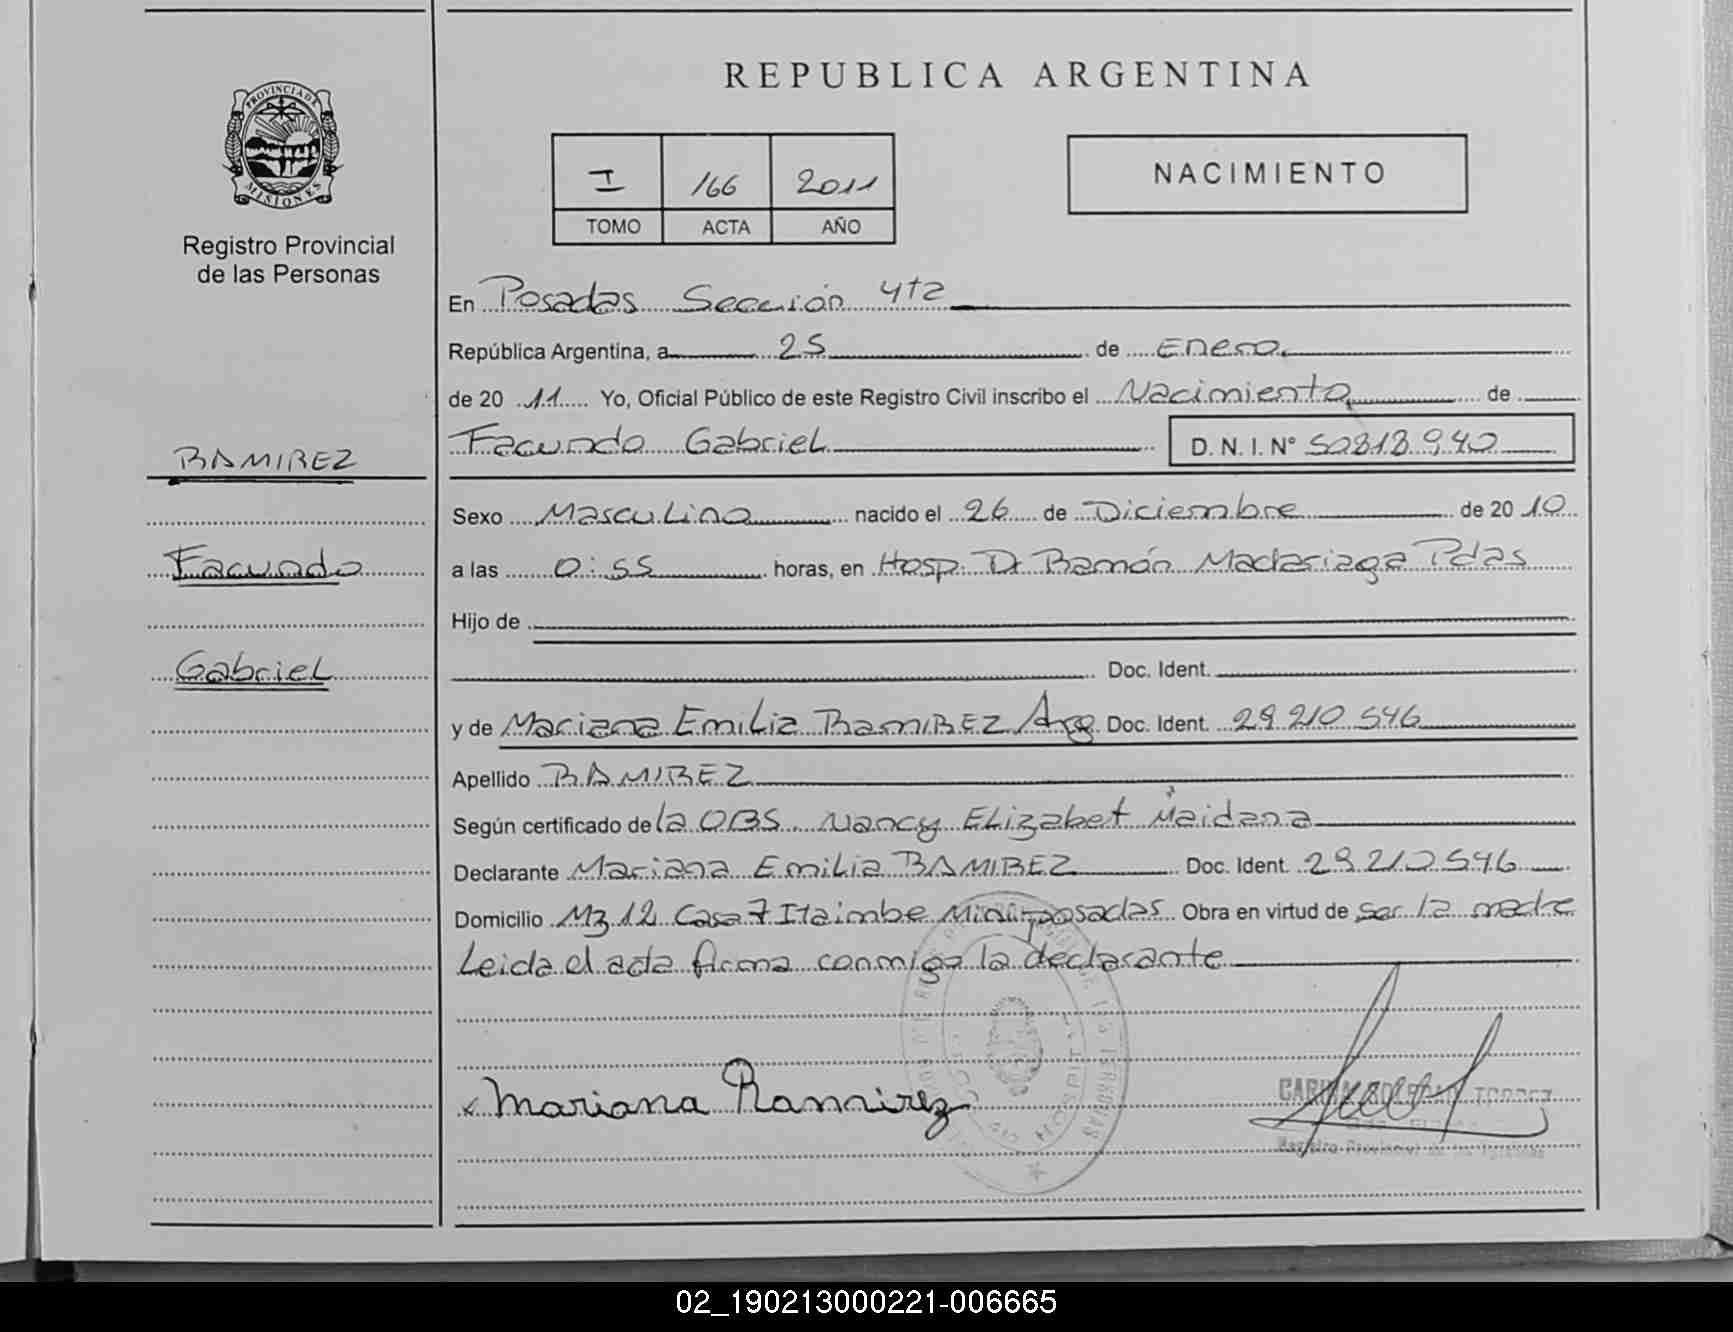 REPUBLICA ARGENTINA
PROVINCIA DE
MISIONES
Registro Provincial
de las Personas
I 166 2011
TOMO ACTA AÑO
NACIMIENTO
En Posadas Sección 4ta
República Argentina, a 25 de Enero
de 20 11 Yo, Oficial Público de este Registro Civil inscribo el Nacimiento de
Facundo Gabriel D. N. I. Nº 50818940
RAMIREZ
Facundo
Gabriel
Sexo Masculino nacido el 26 de Diciembre de 20 10
a las 0:55 horas, en Hosp. Dr Ramón Madariaga Pdas
Hijo de
Doc. Ident.
y de Mariana Emilia RamIREZ Arg Doc. Ident. 29 210 546
Apellido RAMIREZ
Según certificado de la OBS. Nancy ELizabet Maidana
Declarante Mariana Emilia RAMIREZ Doc. Ident. 29.210546
Domicilio Mz 12 Casa 7 Itaimbe Mini posadas Obra en virtud de ser la madre
Leida el acta firma conmigo la declarante
Mariana Ramirez
HOSPITAL
TORREZ
Registro Provincial de las Personas
02_190213000221-006665